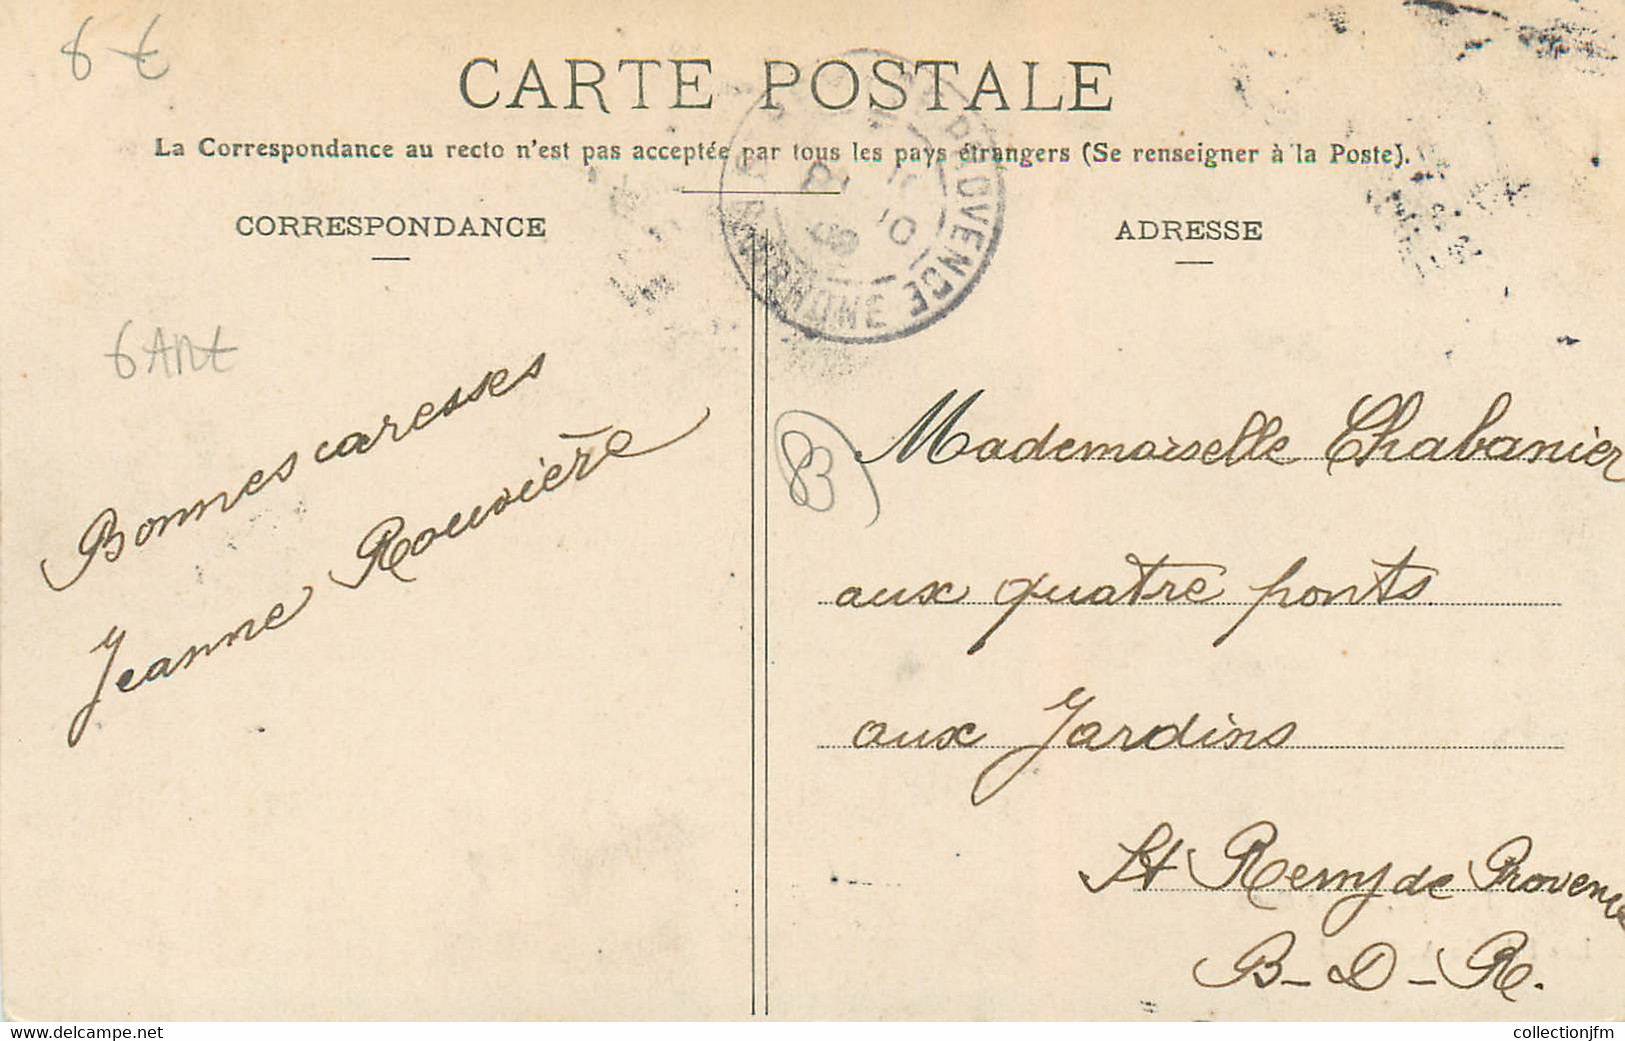 8 €
CARTE POSTALE
La Correspondance au recto n'est pas acceptée par tous les pays étrangers (Se renseigner à la Poste).
CORRESPONDANCE
ADRESSE
PROVENCE
RHONE
10
09
Bonnes caresses
Jeanne Rouvière
83
Mademoiselle Chabanier
aux quatre ponts
aux Jardins
St Remy de Provence
B-D-R.
collectionjfm
www.delcampe.net